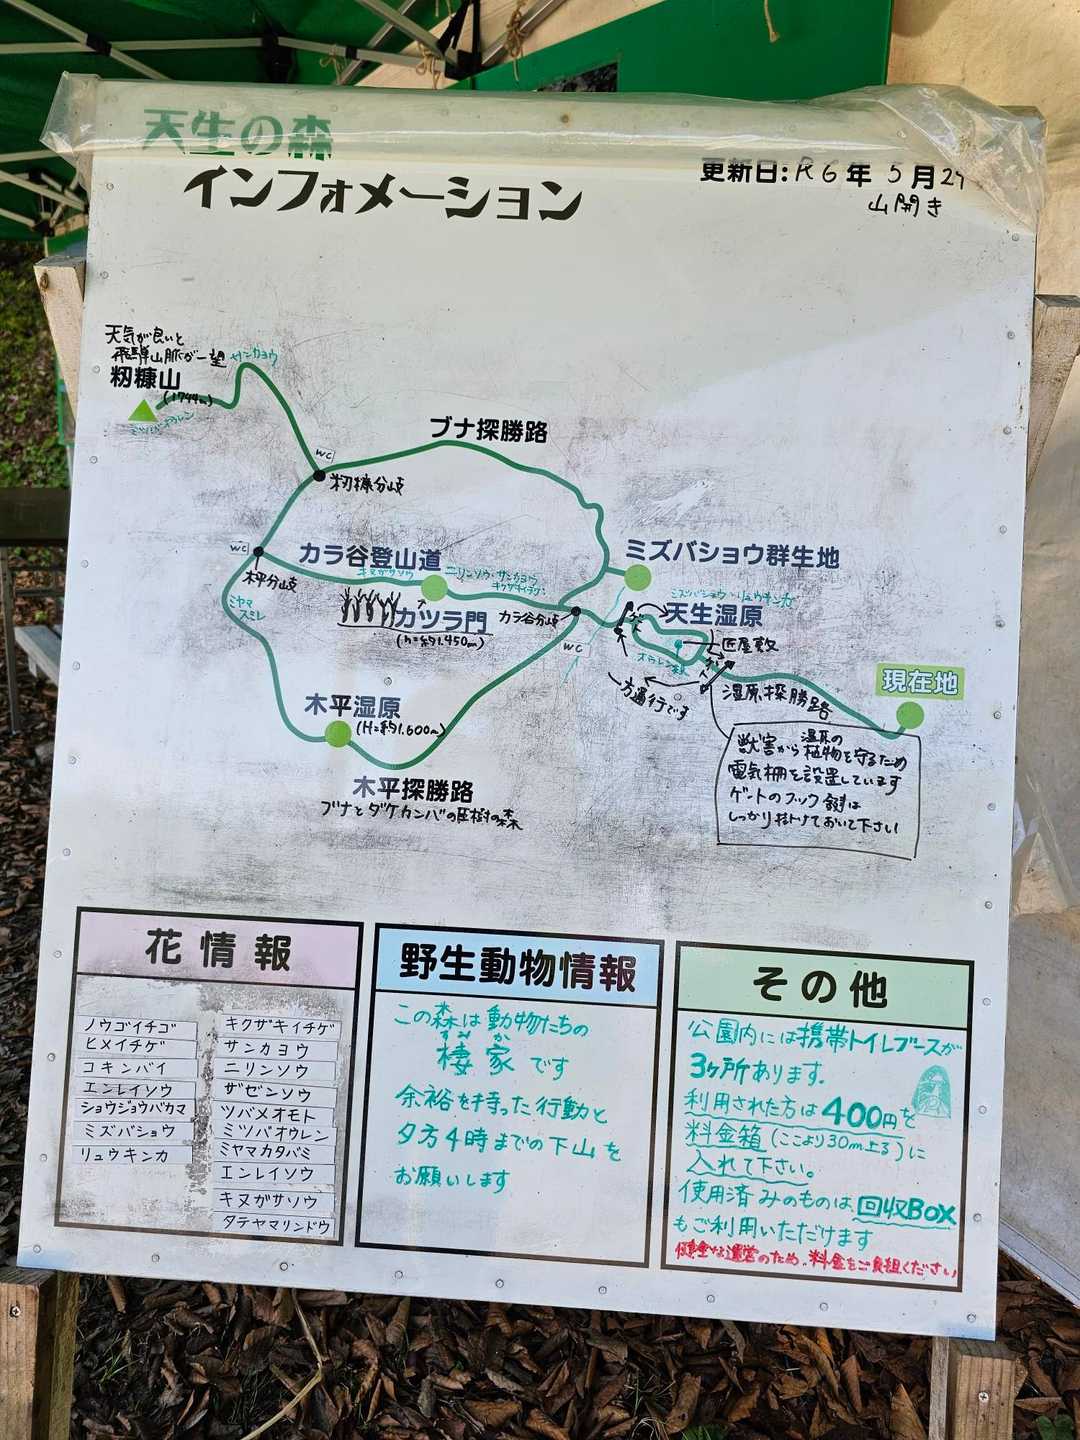 天生の森
インフォメーション
更新日:R6年5月29
山開き
天気が良いと
飛騨山脈が一望
サンカヨウ
籾糠山
(1744m)
ミツバオウレン
ブナ探勝路
WC
籾糠分岐
WC
木平分岐
カラ谷登山道
キヌガサソウ
ニリンソウ・サンカヨウ
キクザキイチゲ
ミズバショウ群生地
ミズバショウ・リュウキンカ
天生湿原
ミヤマ
スミレ
カツラ門
(h=約1.450m)
カラ谷分岐
WC
匠屋敷
一方通行です
湿原探勝路
現在地
木平湿原
(H=約1.600m)
木平探勝路
ブナとダケカンバの巨樹の森
獣害から湿原の植物を守るため
電気柵を設置しています
ゲートのフック鍵は
しっかり掛けておいて下さい
花情報
ノウゴイチゴ
ヒメイチゲ
コキンバイ
エンレイソウ
ショウジョウバカマ
ミズバショウ
リュウキンカ
キクザキイチゲ
サンカヨウ
ニリンソウ
ザゼンソウ
ツバメオモト
ミツバオウレン
ミヤマカタバミ
エンレイソウ
キヌガサソウ
タテヤマリンドウ
野生動物情報
この森は動物たちの
すみか
棲家です
余裕を持った行動と
夕方4時までの下山を
お願いします
その他
公園内には携帯トイレブースが
3ヶ所あります.
利用された方は400円を
料金箱(ここより30m上る)に
入れて下さい。
使用済みのものは、回収BOX
もご利用いただけます
健全な運営のため、料金をご負担ください